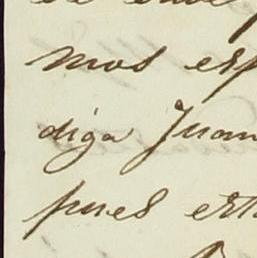 mos esp
diga Juan
pues est